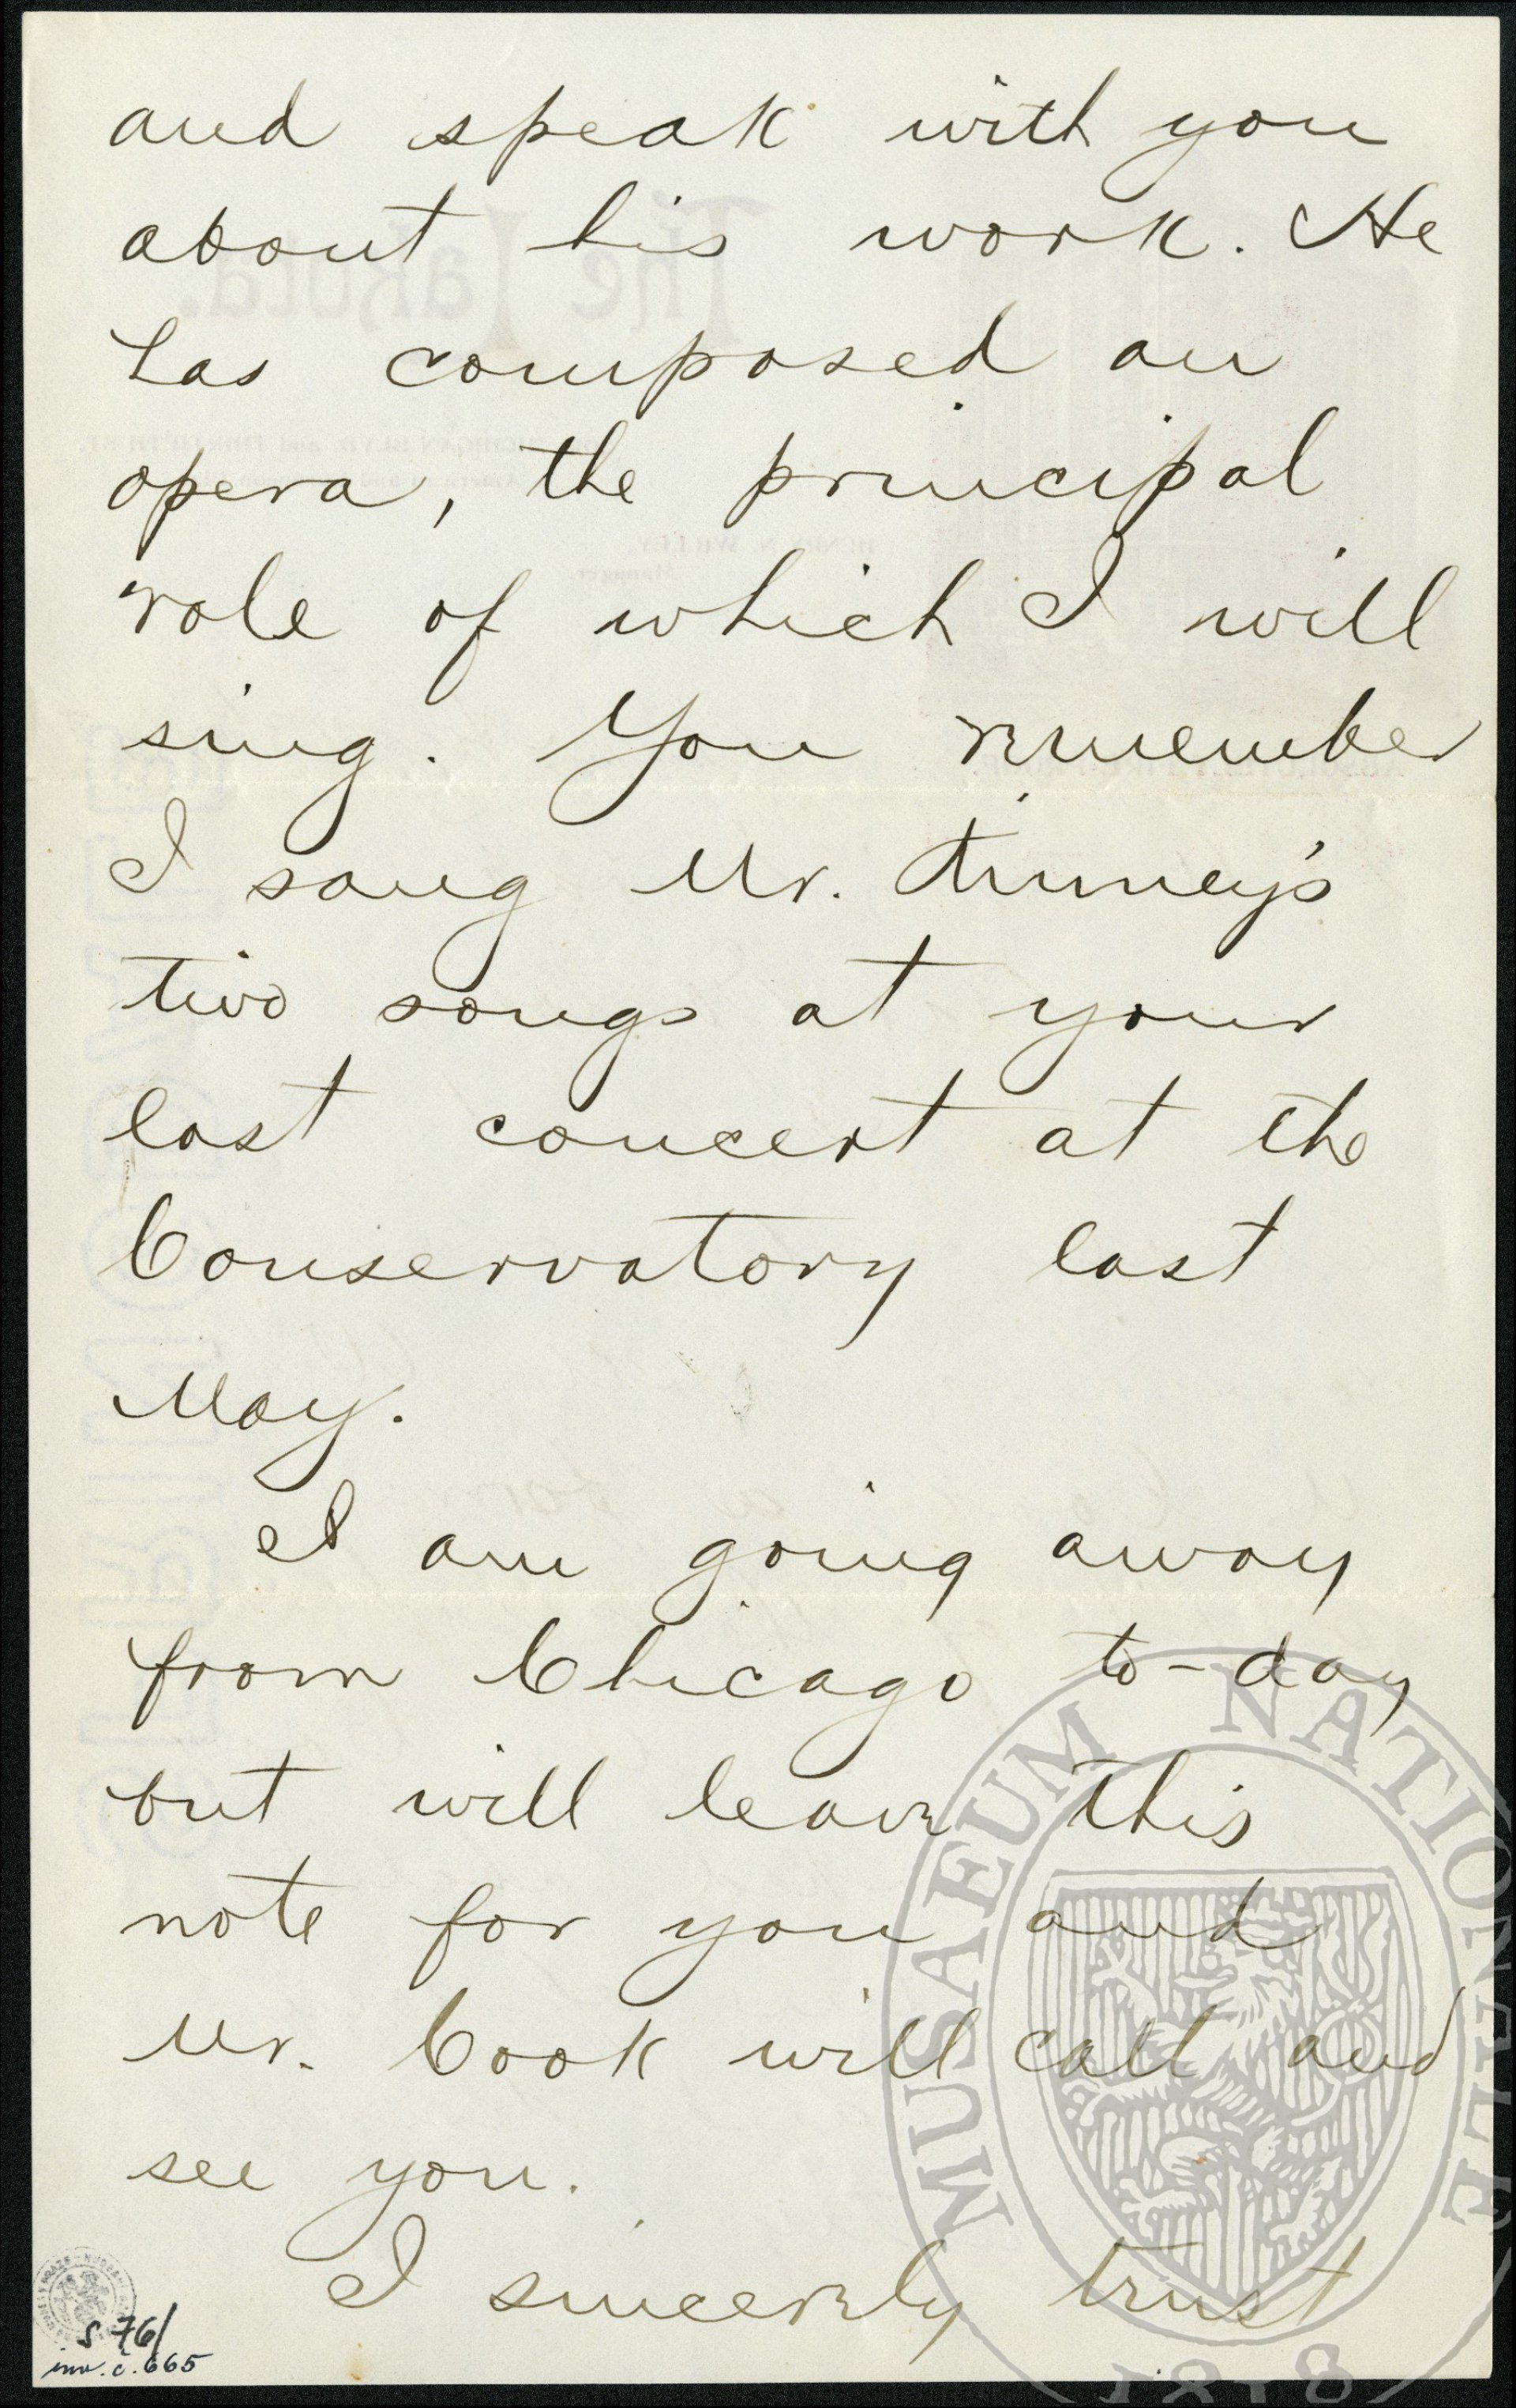 and speak with you
about his work. He
has composed an
opera, the principal
role of which I will
sing. You remember
I sang Mr.
two songs at your
last concert at the
Conservatory last
May.
I am going away
from Chicago to-day
but will leave this
note for you and
Mr. Cook will call and
see you.
I sincerely trust
MUSAEUM NATIONALE
1818
S 76/
inv. č. 665